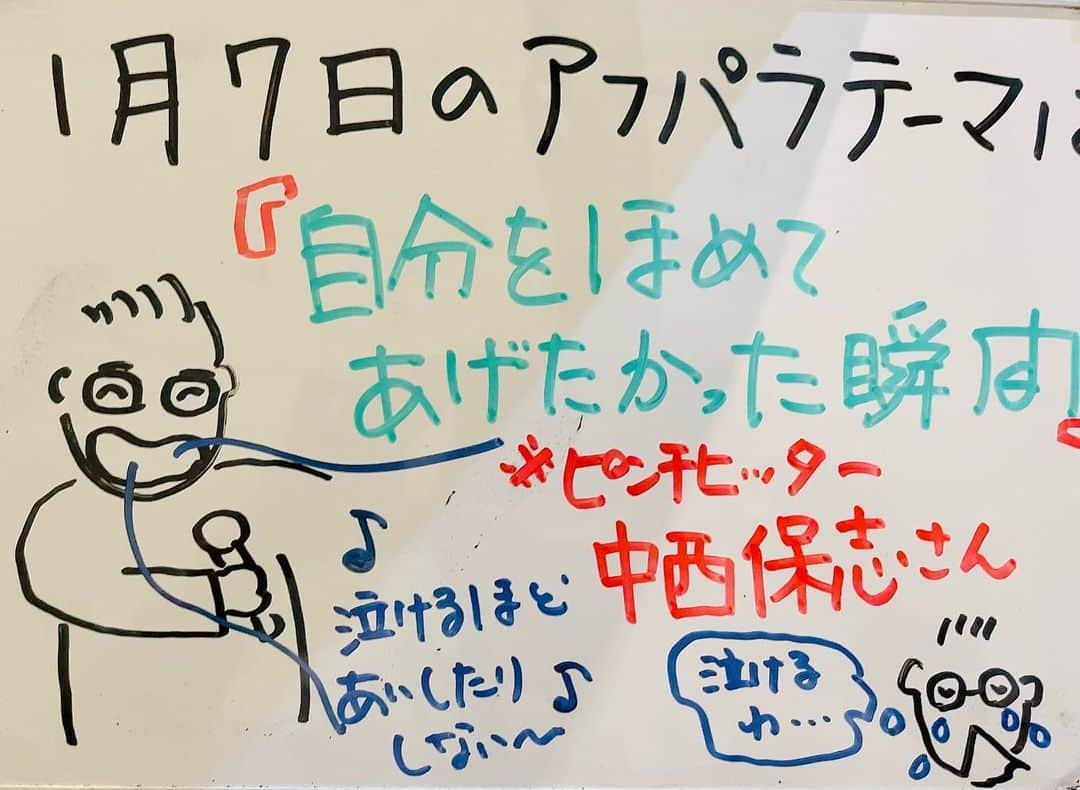 1月7日のアフパラテーマは
『自分をほめて
あげたかった瞬間』
※ピンチヒッター
中西保志さん
♪
泣けるほど
あいしたり♪
しない〜
泣ける
わ…